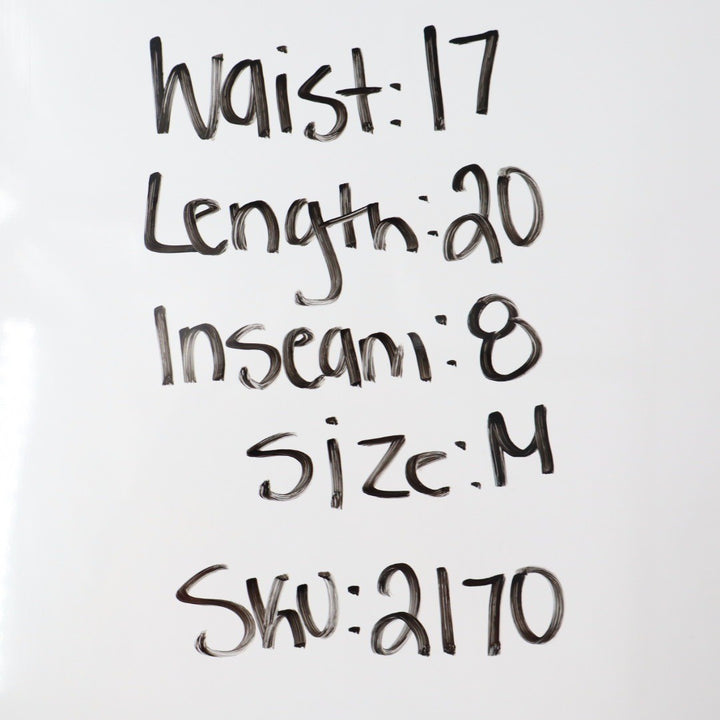 Waist: 17
Length: 20
Inseam: 8
Size: M
Sku: 2170